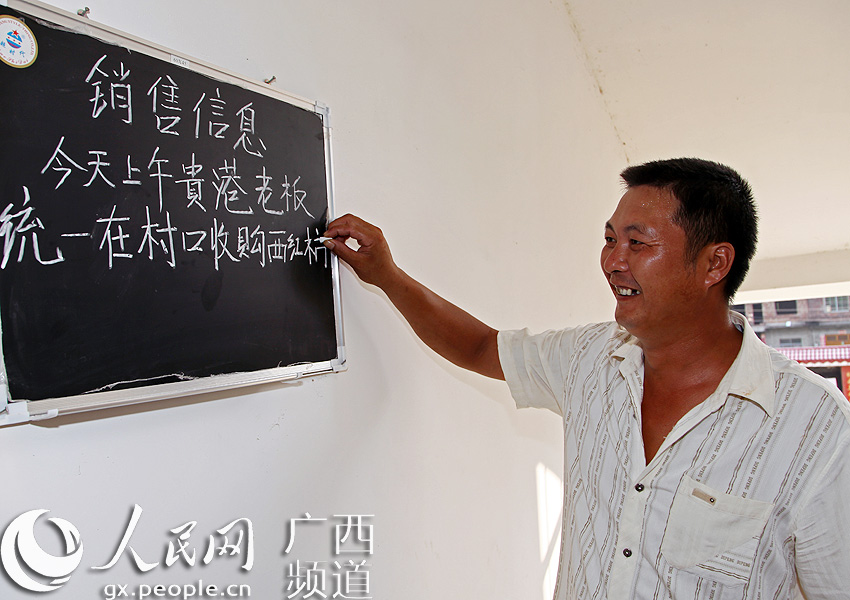 销售信息
今天上午貴港老板
统一在村口收购西红柿
人民网 广西
gx.people.cn 频道